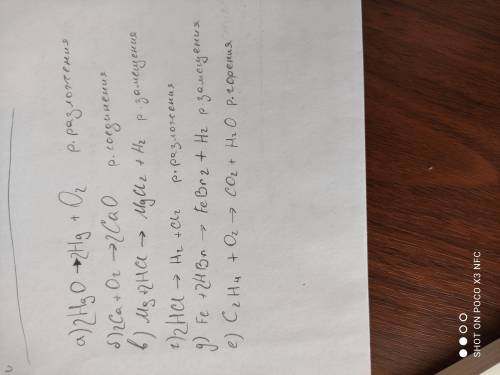 а) 2HgO → 2Hg + O2 р. разложения
б) 2Ca + O2 → 2CaO р. соединения
в) Mg + 2HCl → MgCl2 + H2 р. замещения
г) 2HCl → H2 + Cl2 р. разложения
д) Fe + 2HBr → FeBr2 + H2 р. замещения
е) C2H4 + O2 → CO2 + H2O р. горения
SHOT ON POCO X3 NFC